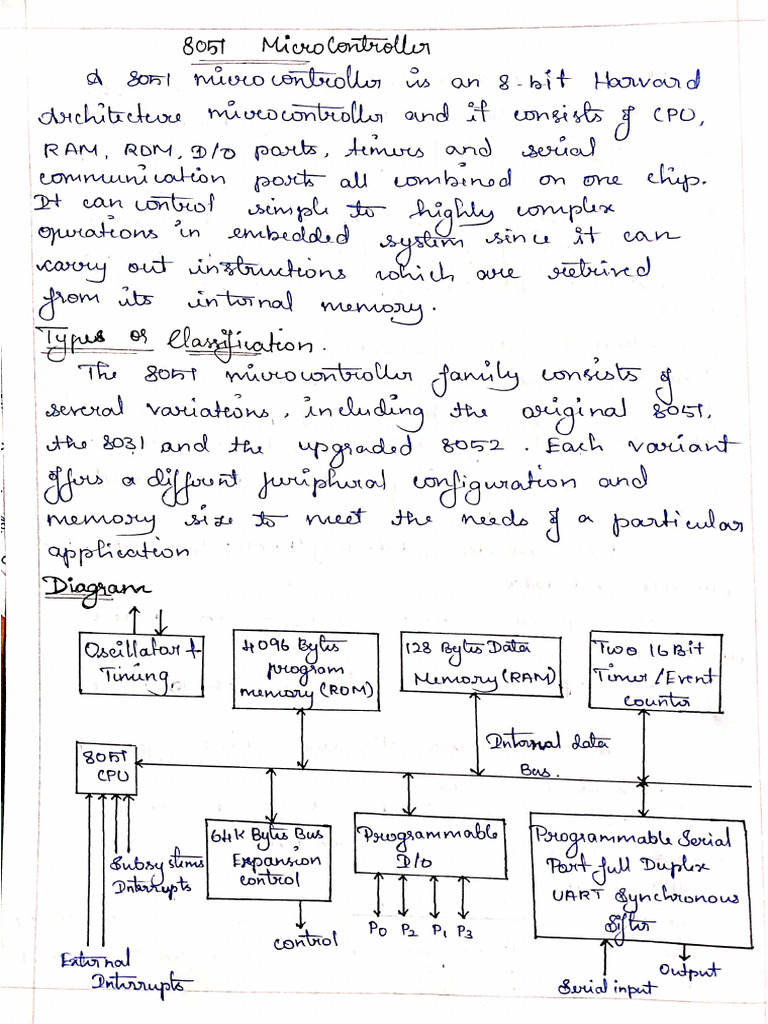 8051 MicroController
A 8051 microcontroller is an 8-bit Harvard
Architecture microcontroller and it consists of CPU,
RAM, ROM, I/O ports, timers and serial
communication ports all combined on one chip.
It can control simple to highly complex
operations in embedded system since it can
carry out instructions which are retrived
from its internal memory.
Types or Classification.
The 8051 microcontroller family consists of
several variations, including the original 8051,
the 8031 and the upgraded 8052. Each variant
offers a different peripheral configuration and
memory size to meet the needs of a particular
application
Diagram
Oscillator +
Timing.
4096 Bytes
program
memory (ROM)
128 Bytes Data
Memory (RAM)
Two 16 Bit
Timer / Event
Counter
8051
CPU
Internal data
Bus.
Subsystems
Interrupts
64K Bytes Bus
Expansion
control
Programmable
I/O
Programmable Serial
Port full Duplex
UART Synchronous
Sifter
control
P0 P2 P1 P3
External
Interrupts
Serial input
Output